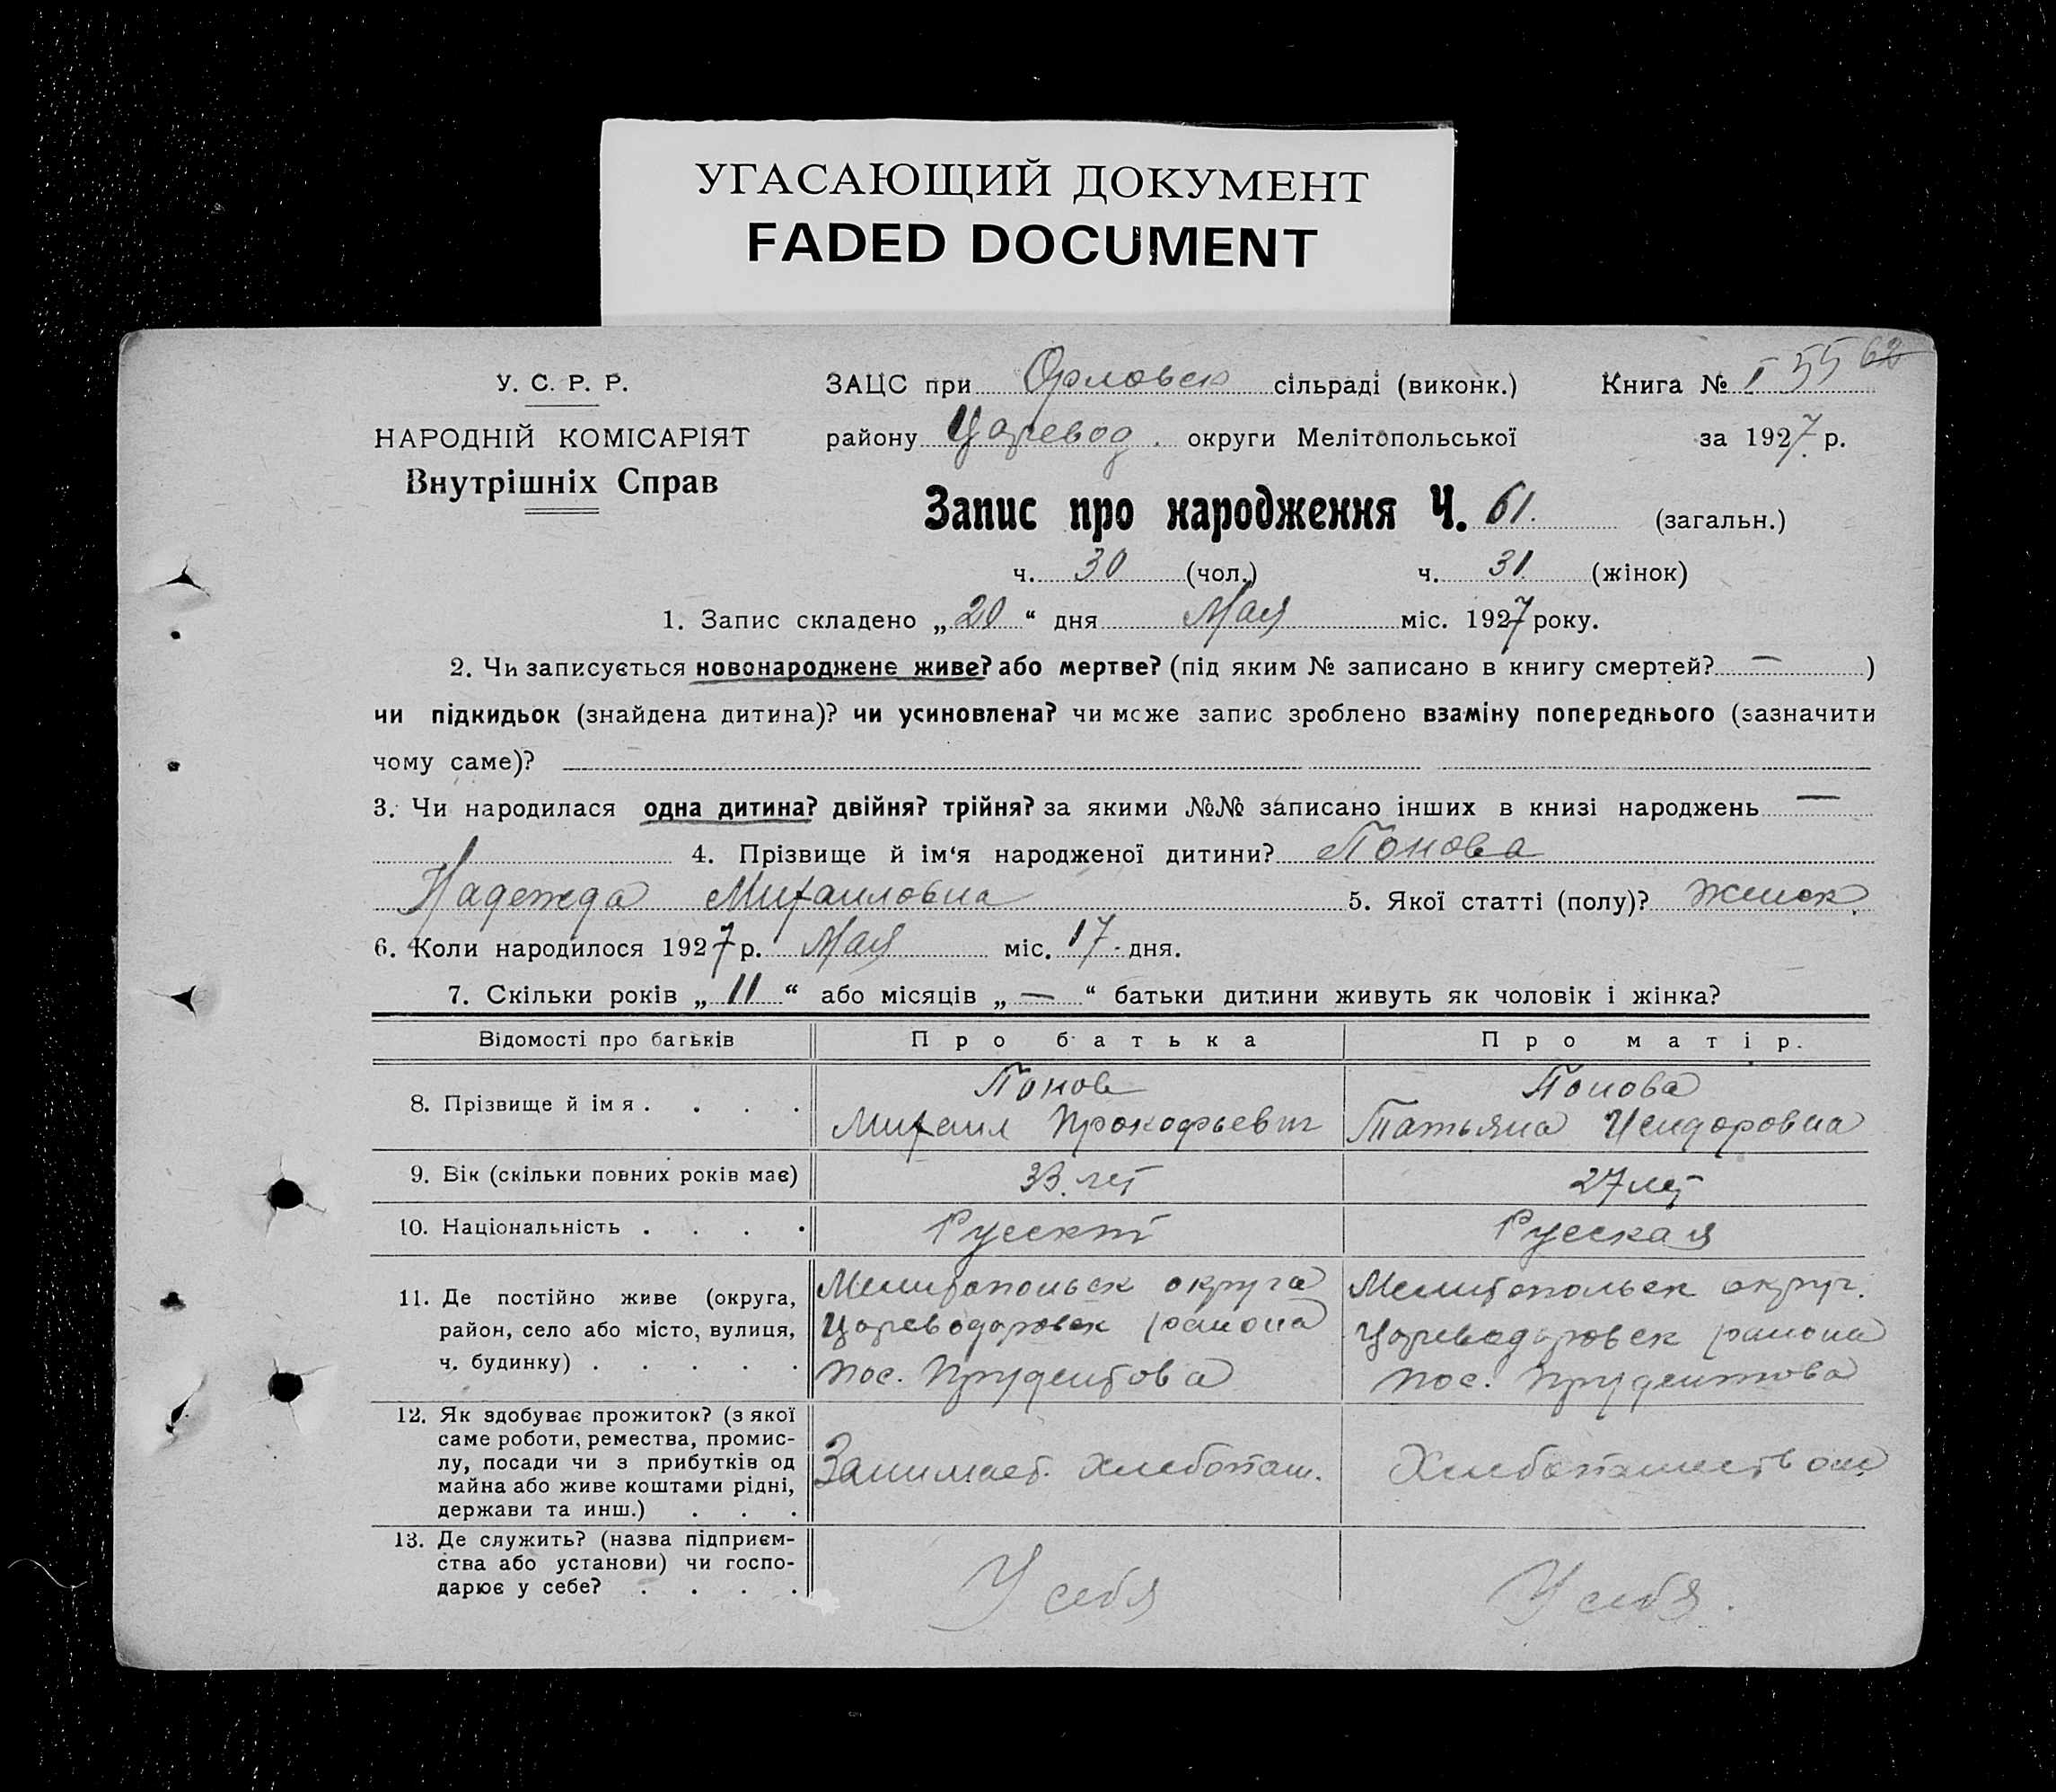 УГАСАЮЩИЙ ДОКУМЕНТ
FADED DOCUMENT
У. С. Р. Р.
НАРОДНІЙ КОМІСАРІЯТ
Внутрішніх Справ
ЗАЦС при Орловск сільраді (виконк.) Книга № I 55 62
району Царевод. округи Мелітопольської за 1927 р.
Запис про народження Ч. 61. (загальн.)
ч. 30 (чол.) ч. 31 (жінок)
1. Запис складено „20“ дня Мая міс. 1927 року.
2. Чи записується новонароджене живе? або мертве? (під яким № записано в книгу смертей? — )
чи підкидьок (знайдена дитина)? чи усиновлена? чи може запис зроблено взаміну попереднього (зазначити
чому саме)?
3. Чи народилася одна дитина? двійня? трійня? за якими №№ записано інших в книзі народжень —
4. Прізвище й ім‘я народженої дитини? Попова
Надежда Михаиловна 5. Якої статті (полу)? Женск.
6. Коли народилося 1927 р. Мая міс. 17 дня.
7. Скільки років „11“ або місяців „—“ батьки дитини живуть як чоловік і жінка?
Відомості про батьків Про батька Про матір.
8. Прізвище й імя . . . .
Попов
Михаил Прокофьевич
Попова
Татьяна Исидоровна
9. Вік (скільки повних років має) 33 лет 27 лет
10. Національність . . . . Русский Русская
11. Де постійно живе (округа,
район, село або місто, вулиця,
ч. будинку) . . . . .
Мелитопольск округа
Цареводаровск района
пос. Прудентова
Мелитопольск округ.
Цареводаровск района
пос. Прудентова
12. Як здобуває прожиток? (з якої
саме роботи, ремества, промис-
лу, посади чи з прибутків од
майна або живе коштами рідні,
держави та инш.) . . .
Занимает. Хлебопаш.
Хлебопашеством
13. Де служить? (назва підприєм-
ства або установи) чи госпо-
дарює у себе? . . . .
У себя
У себя.